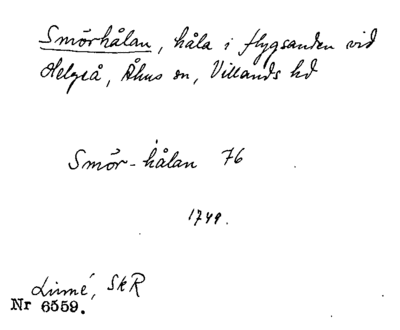 Smörhålan, håla i flygsanden vid
Helgeå, Åhus sn, Villands hd
Smör-hålan 76
1749.
Linné, SkR
Nr 6559.